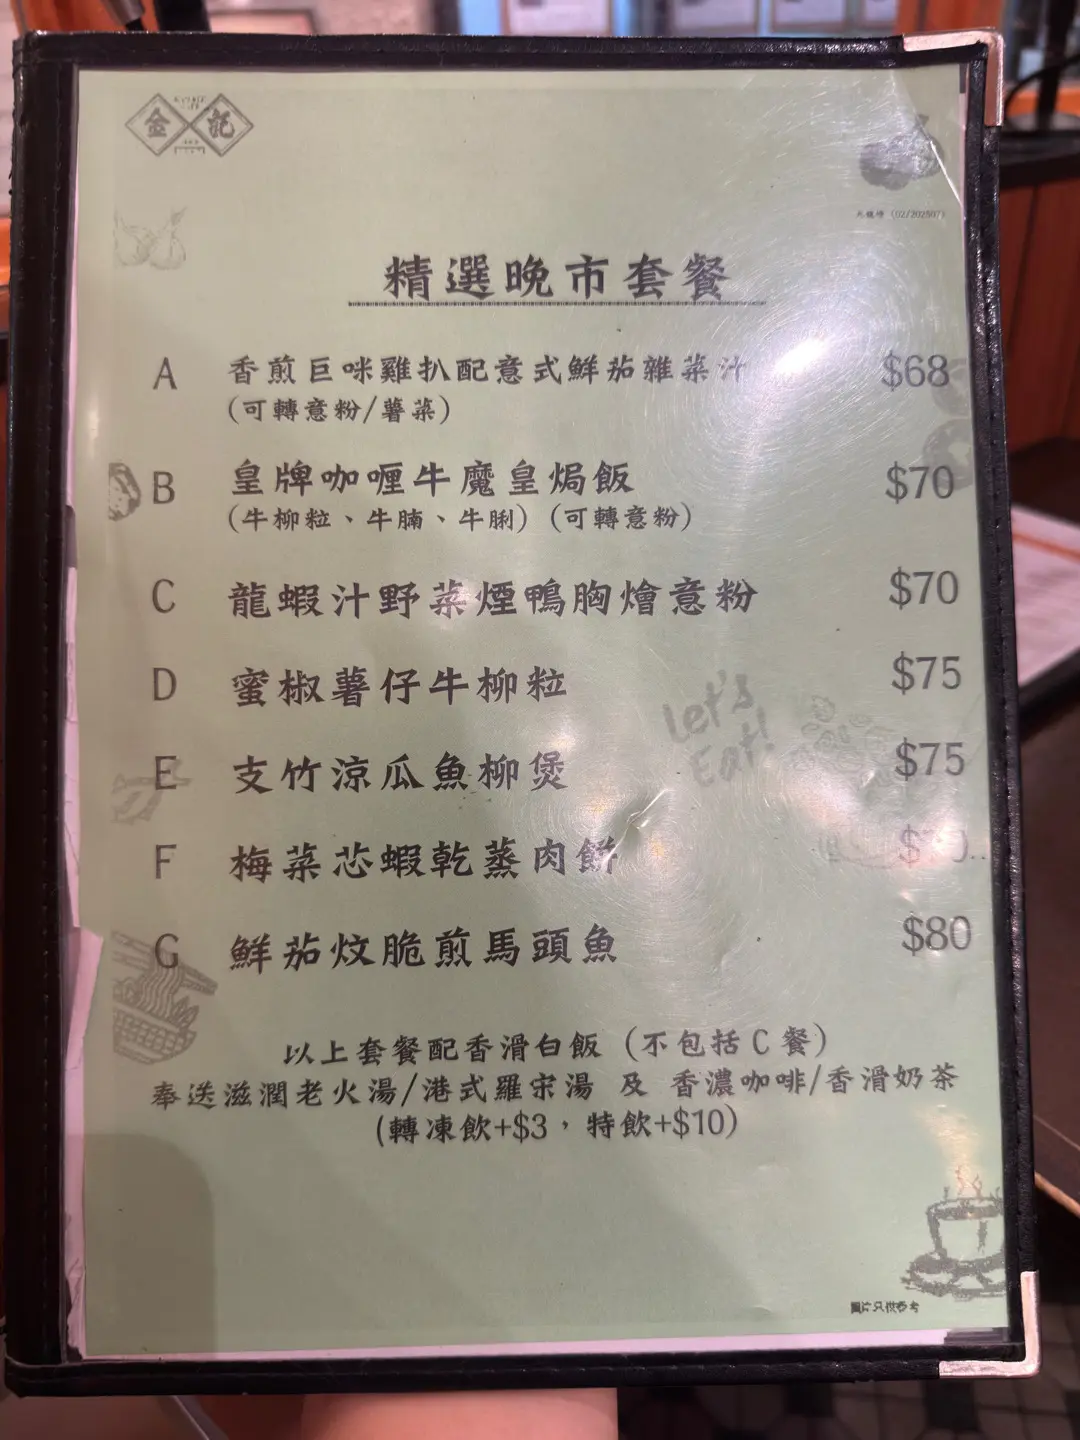 金記
九龍灣 (02/202507)
精選晚市套餐
A 香煎巨咪雞扒配意式鮮茄雜菜汁 $68
(可轉意粉/薯菜)
B 皇牌咖喱牛魔皇焗飯 $70
(牛柳粒、牛腩、牛脷) (可轉意粉)
C 龍蝦汁野菜煙鴨胸燴意粉 $70
D 蜜椒薯仔牛柳粒 $75
Let's
Eat!
E 支竹涼瓜魚柳煲 $75
F 梅菜芯蝦乾蒸肉餅
G 鮮茄炆脆煎馬頭魚 $80
以上套餐配香滑白飯 (不包括 C 餐)
奉送滋潤老火湯/港式羅宋湯 及 香濃咖啡/香滑奶茶
(轉凍飲+$3，特飲+$10)
圖片只供參考